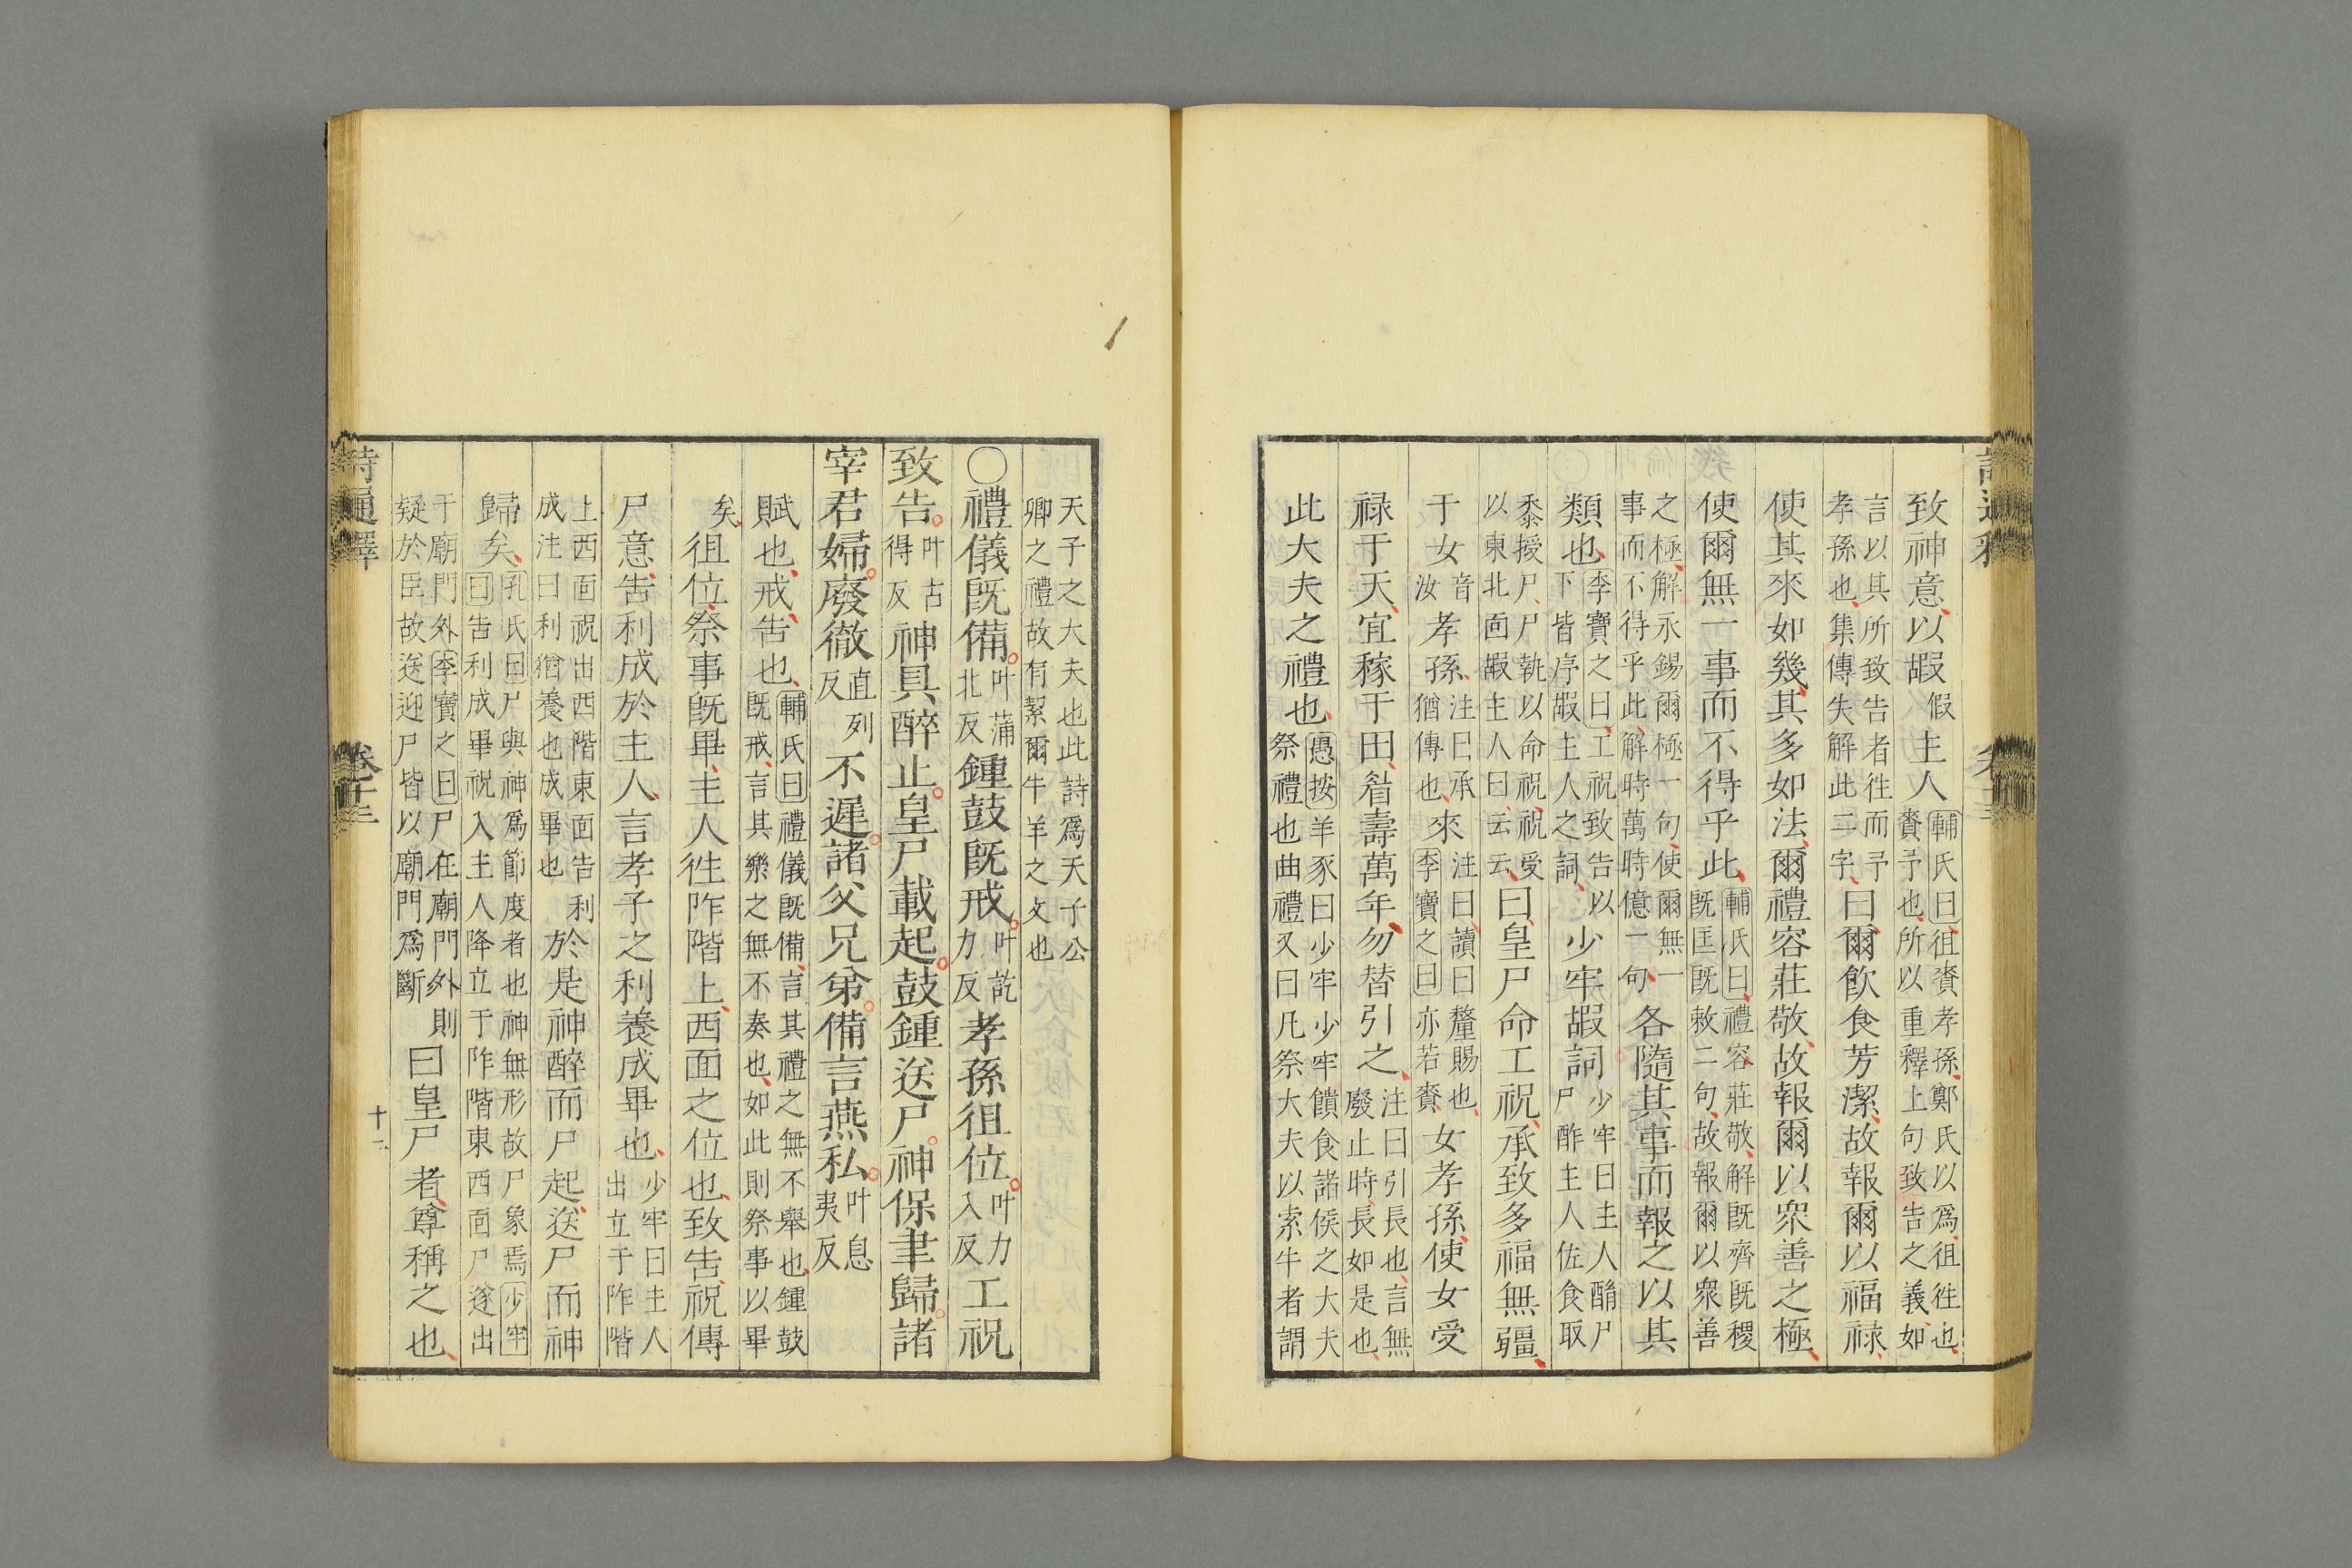 致神意以嘏假主人輔氏曰徂賚孝孫鄭氏以爲徂徃也賚予也所以重釋上句致告之義如
言以其所致告者徃而予孝孫也集傳失解此二字曰爾飲食芳潔故報爾以福祿
使其來如幾其多如法爾禮容莊敬故報爾以衆善之極
使爾無一事而不得乎此輔氏曰禮容莊敬解既齊既稷既匡既敕二句故報爾以衆善
之極解永錫爾極一句使爾無一事而不得乎此解時萬時億一句各隨其事而報之以其
類也李寶之曰工祝致告以下皆序嘏主人之詞少牢嘏詞少牢曰主人酳尸尸酢主人佐食取
黍授尸尸執以命祝祝受以東北靣嘏主人曰云云曰皇尸命工祝承致多福無疆
于女音汝孝孫注曰承猶傳也來注曰讀曰釐賜也李寶之曰亦若賚女孝孫使女受
祿于天宜稼于田眉壽萬年勿替引之注曰引長也言無廢止時長如是也
此大夫之禮也愚按羊豕曰少牢少牢饋食諸侯之大夫祭禮也曲禮又曰凡祭大夫以索牛者謂
天子之大夫也此詩爲天子公卿之禮故有絜爾牛羊之文也
○禮儀既備叶蒲北反鍾鼓既戒叶訖力反孝孫徂位叶力入反工祝
致告叶古得反神具醉止皇尸載起鼓鍾送尸神保聿歸諸
宰君婦廢徹直列反不遲諸父兄弟備言燕私叶息夷反
賦也戒告也輔氏曰禮儀既備言其禮之無不舉也鍾鼓既戒言其樂之無不奏也如此則祭事以畢
矣徂位祭事既畢主人徃阼階上西面之位也致告祝傳
尸意告利成於主人言孝子之利養成畢也少牢曰主人出立于阼階
上西靣祝出西階東靣告利成注曰利猶養也成畢也於是神醉而尸起送尸而神
歸矣孔氏曰尸與神爲節度者也神無形故尸象焉少牢曰告利成畢祝入主人降立于阼階東西靣尸遂出
于廟門外李寶之曰尸在廟門外則疑於臣故送迎尸皆以廟門爲斷曰皇尸者尊稱之也
詩通釋
卷十三